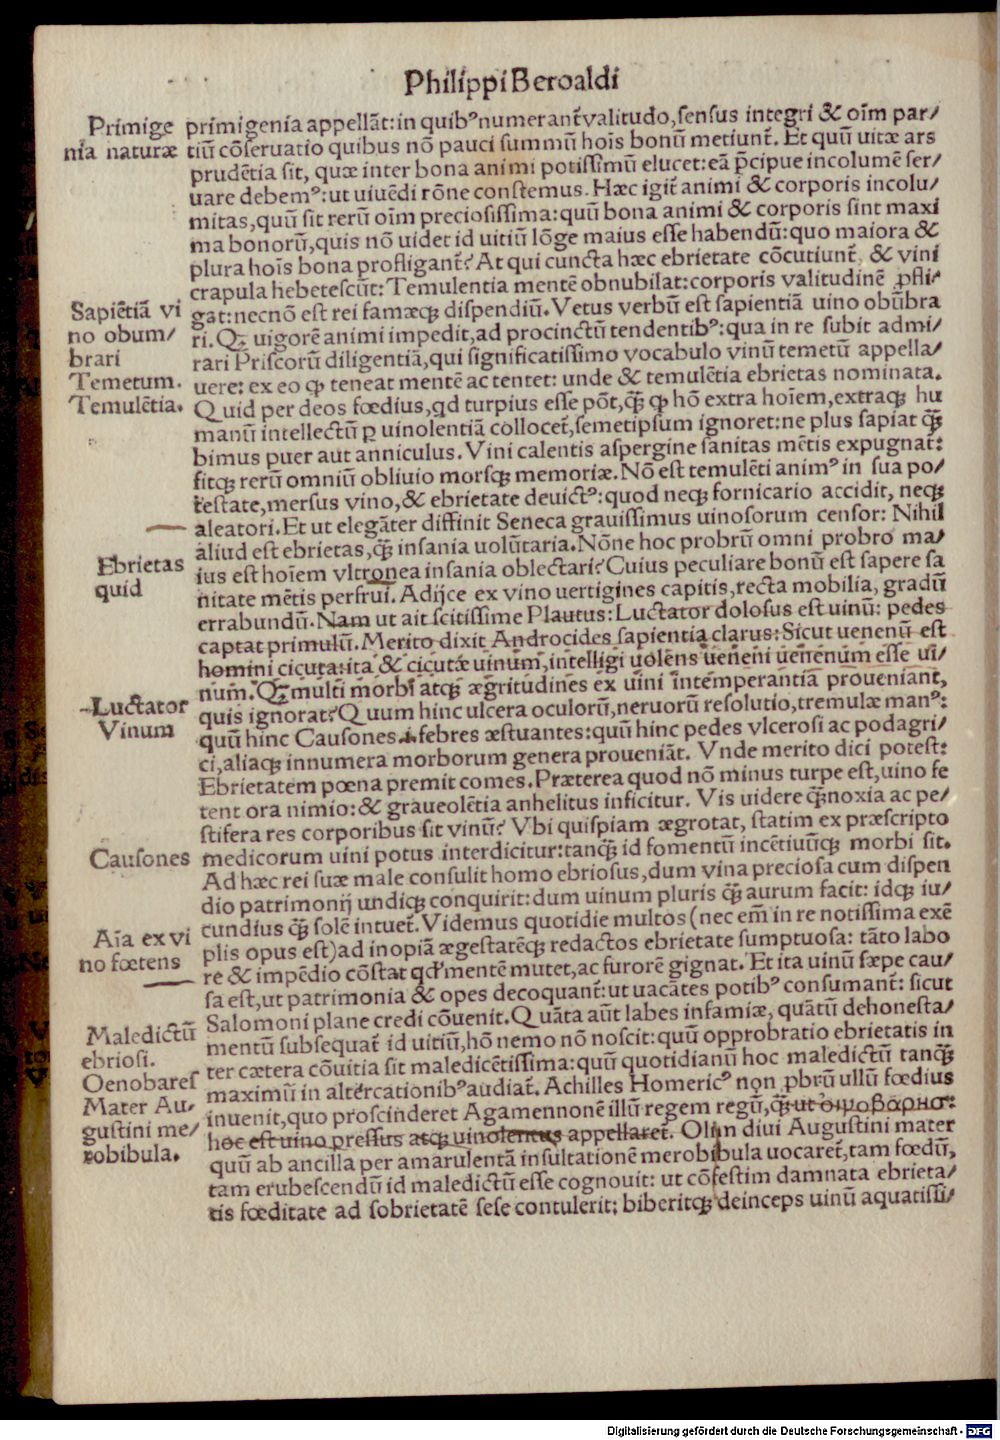 Philippi Beroaldi
Primige
nia naturæ
primigenia appellāt: in quibꝰ numerant̃ valitudo, sensus integri & oīm par/
tiū cōseruatio quibus nō pauci summū hoīs bonū metiunt̃. Et quū uitæ ars
prudētia sit, quæ inter bona animi potissimū elucet: eā p̄cipue incolumē ser/
uare debemꝰ: ut uiuēdi rōne constemus. Hæc igit̃ animi & corporis incolu/
mitas, quū sit rerū oīm preciosissima: quū bona animi & corporis sint maxi
ma bonorū, quis nō uidet id uitiū lōge maius esse habendū: quo maiora &
plura hoīs bona profligant̃? At qui cuncta hæc ebrietate cōcutiunt̃, & vini
crapula hebetescūt: Temulentia mentē obnubilat: corporis valitudinē ꝓfli/
gat: necnō est rei famæqꝫ dispendiū. Vetus verbū est sapientiā uino obūbra
ri. Qꝫ uigorē animi impedit, ad procinctū tendentibꝰ: qua in re subit admi/
rari Priscorū diligentiā, qui significatissimo vocabulo vinū temetū appella/
uere: ex eo ꝙ teneat mentē ac tentet: unde & temulētia ebrietas nominata.
Quid per deos fœdius, qd turpius esse pōt, q̄ꝫ ꝙ hō extra hoīem, extraqꝫ hu
manū intellectū ꝑ uinolentiā collocet̃, semetipsum ignoret: ne plus sapiat q̄ꝫ
bimus puer aut anniculus. Vini calentis aspergine sanitas mētis expugnat̃:
fitqꝫ rerū omniū obliuio morsqꝫ memoriæ. Nō est temulēti animꝰ in sua po/
testate, mersus vino, & ebrietate deuictꝰ: quod neqꝫ fornicario accidit, neqꝫ
aleatori. Et ut elegāter diffinit Seneca grauissimus uinosorum censor: Nihil
aliud est ebrietas, q̄ꝫ insania uolūtaria. Nōne hoc probrū omni probro ma/
ius est hoīem vltronea insania oblectari? Cuius peculiare bonū est sapere sa
nitate mētis perfrui. Adijce ex vino uertigines capitis, recta mobilia, gradū
errabundū. Nam ut ait scitissime Plautus: Luctator dolosus est uinū: pedes
captat primulū. Merito dixit Androcides sapientia clarus: Sicut uenenū est
homini cicuta: ita & cicutæ uinum, intelligi uolens ueneni uenenum esse ui/
num. Qꝫ multi morbi atqꝫ ægritudines ex uini intemperantia proueniant,
quis ignorat? Quum hinc ulcera oculorū, neruorū resolutio, tremulæ manꝰ:
quū hinc Causones .i. febres æstuantes: quū hinc pedes vlcerosi ac podagri/
ci, aliaqꝫ innumera morborum genera proueniāt. Vnde merito dici potest:
Ebrietatem pœna premit comes. Præterea quod nō minus turpe est, uino fe
tent ora nimio: & graueolētia anhelitus inficitur. Vis uidere q̄ꝫ noxia ac pe/
stifera res corporibus sit vinū? Vbi quispiam ægrotat, statim ex præscripto
medicorum uini potus interdicitur: tanq̄ꝫ id fomentū incētiuūqꝫ morbi sit.
Ad hæc rei suæ male consulit homo ebriosus, dum vina preciosa cum dispen
dio patrimonij undiqꝫ conquirit: dum uinum pluris q̄ꝫ aurum facit: idqꝫ iu/
cundius q̄ꝫ solē intuet̃. Videmus quotidie multos (nec em̄ in re notissima exē
plis opus est) ad inopiā ægestatēqꝫ redactos ebrietate sumptuosa: tāto labo
re & impēdio cōstat qd' mentē mutet, ac furorē gignat. Et ita uinū sæpe cau/
sa est, ut patrimonia & opes decoquant̃: ut uacātes potibꝰ consumant̃: sicut
Salomoni plane credi cōuenit. Quāta aūt labes infamiæ, quātū dehonesta/
mentū subsequat̃ id uitiū, hō nemo nō noscit: quū opprobratio ebrietatis in
ter cætera cōuitia sit maledicētissima: quū quotidianū hoc maledictū tanq̄ꝫ
maximū in altercationibꝰ audiat̃. Achilles Homericꝰ non ꝓbrū ullū fœdius
inuenit, quo proscinderet Agamennonē illū regem regū, q̄ꝫ ut οἰνοβαρησ:
hoc est uino pressus atqꝫ uinolentus appellaret̃. Olim diui Augustini mater
quū ab ancilla per amarulentā insultationē merobibula uocaret̃, tam fœdū,
tam erubescendū id maledictū esse cognouit: ut cōfestim damnata ebrieta/
tis fœditate ad sobrietatē sese contulerit; biberitqꝫ deinceps uinū aquatissi/
Sapiētiā vi
no obum/
brari
Temetum.
Temulētia.
Ebrietas
quid
Luctator
Vinum
Causones
Aīa ex vi
no fœtens
Maledictū
ebriosi.
Oenobares
Mater Au/
gustini me/
robibula.
Digitalisierung gefördert durch die Deutsche Forschungsgemeinschaft - DFG